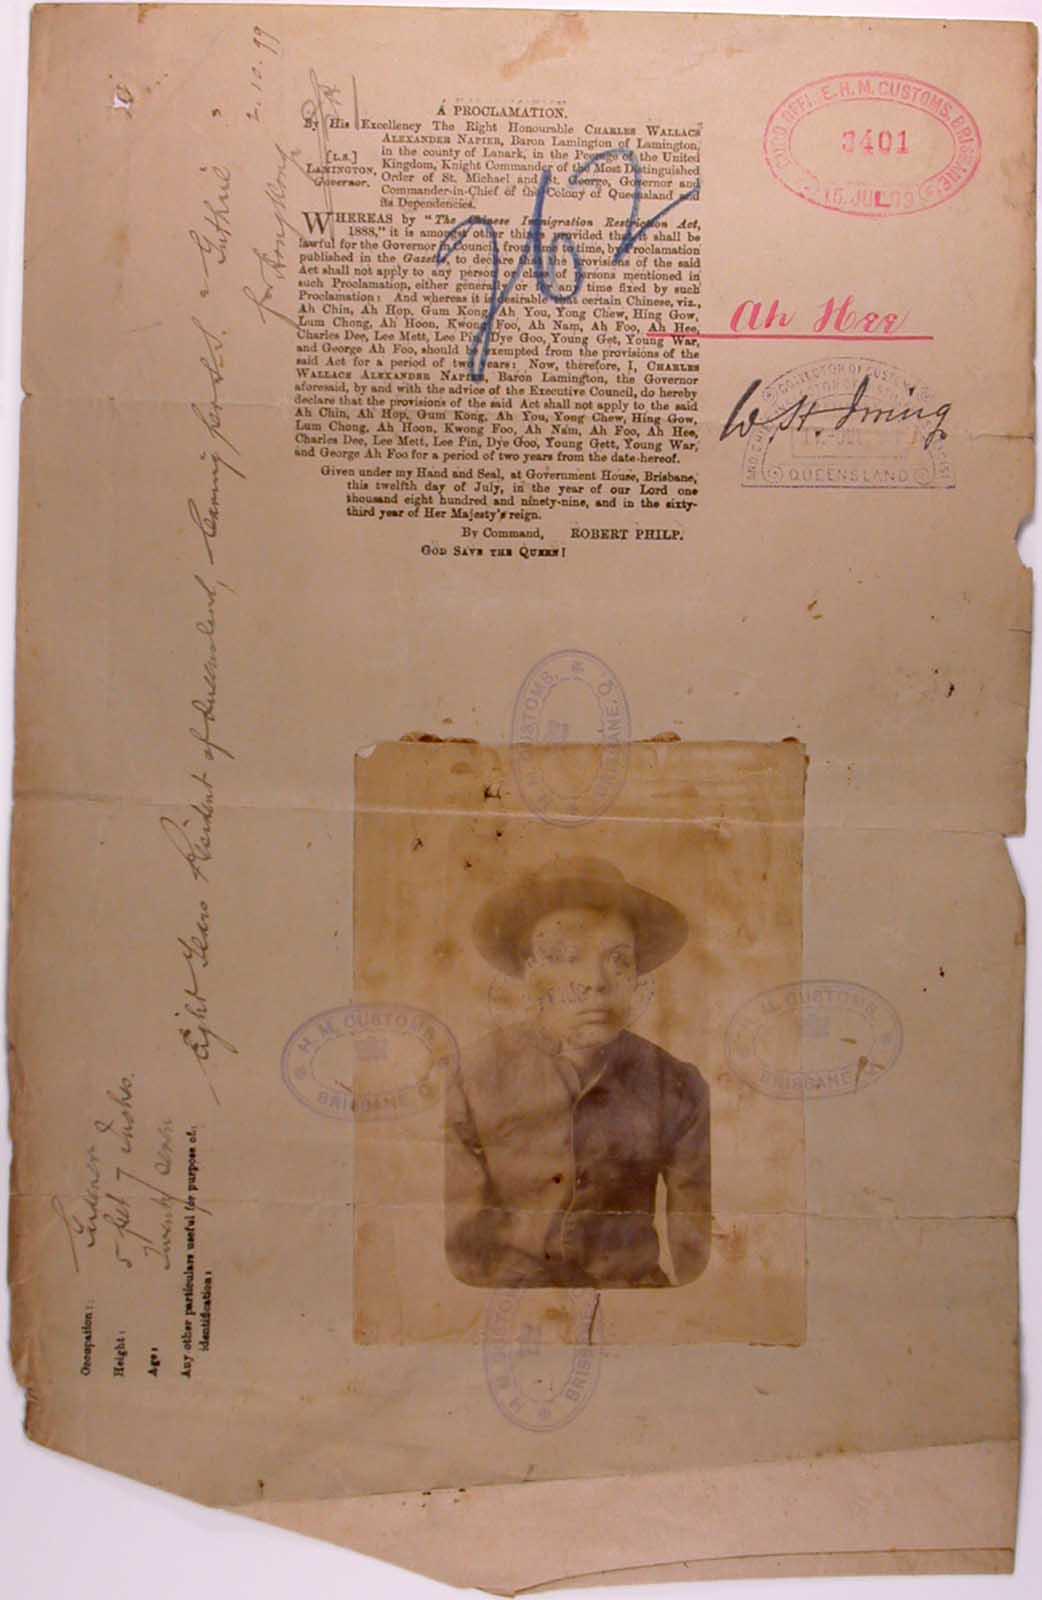 A PROCLAMATION.
By His Excellency The Right Honourable CHARLES WALLACE
ALEXANDER NAPIER, Baron Lamington of Lamington,
in the county of Lanark, in the Peerage of the United
Kingdom, Knight Commander of the Most Distinguished
Order of St. Michael and St. George, Governor and
Commander-in-Chief of the Colony of Queensland and
its Dependencies.
[L.S.]
LAMINGTON,
Governor.
WHEREAS by "The Chinese Immigration Restriction Act,
1888," it is amongst other things provided that it shall be
lawful for the Governor in Council, from time to time, by Proclamation
published in the Gazette, to declare that the provisions of the said
Act shall not apply to any person or class of persons mentioned in
such Proclamation, either generally or for any time fixed by such
Proclamation: And whereas it is desirable that certain Chinese, viz.,
Ah Chin, Ah Hop, Gum Kong, Ah You, Yong Chew, Hing Gow,
Lum Chong, Ah Hoon, Kwong Foo, Ah Nam, Ah Foo, Ah Hee,
Charles Dee, Lee Mett, Lee Pin, Dye Goo, Young Get, Young War,
and George Ah Foo, should be exempted from the provisions of the
said Act for a period of two years: Now, therefore, I, CHARLES
WALLACE ALEXANDER NAPIER, Baron Lamington, the Governor
aforesaid, by and with the advice of the Executive Council, do hereby
declare that the provisions of the said Act shall not apply to the said
Ah Chin, Ah Hop, Gum Kong, Ah You, Yong Chew, Hing Gow,
Lum Chong, Ah Hoon, Kwong Foo, Ah Nam, Ah Foo, Ah Hee,
Charles Dee, Lee Mett, Lee Pin, Dye Goo, Young Gett, Young War,
and George Ah Foo for a period of two years from the date hereof.
Given under my Hand and Seal, at Government House, Brisbane,
this twelfth day of July, in the year of our Lord one
thousand eight hundred and ninety-nine, and in the sixty-
third year of Her Majesty's reign.
By Command, ROBERT PHILP.
GOD SAVE THE QUEEN!
262
H.M. CUSTOMS, BRISBANE
3401
15. JUL 99
Ah Hee
W. H. Irving
COLLECTOR OF CUSTOMS
QUEENSLAND
H. M. CUSTOMS,
BRISBANE. Q.
H. M. CUSTOMS,
BRISBANE. Q.
H. M. CUSTOMS,
BRISBANE
H. M. CUSTOMS
BRISBANE
Occupation: Gardener
Height: 5 feet 7 Inches.
Age: Twenty seven
Any other particulars useful for purpose of
identification:
Eight Years Resident of Queensland, Leaving per S.S. "Guthrie"
for Hongkong
2.10.99